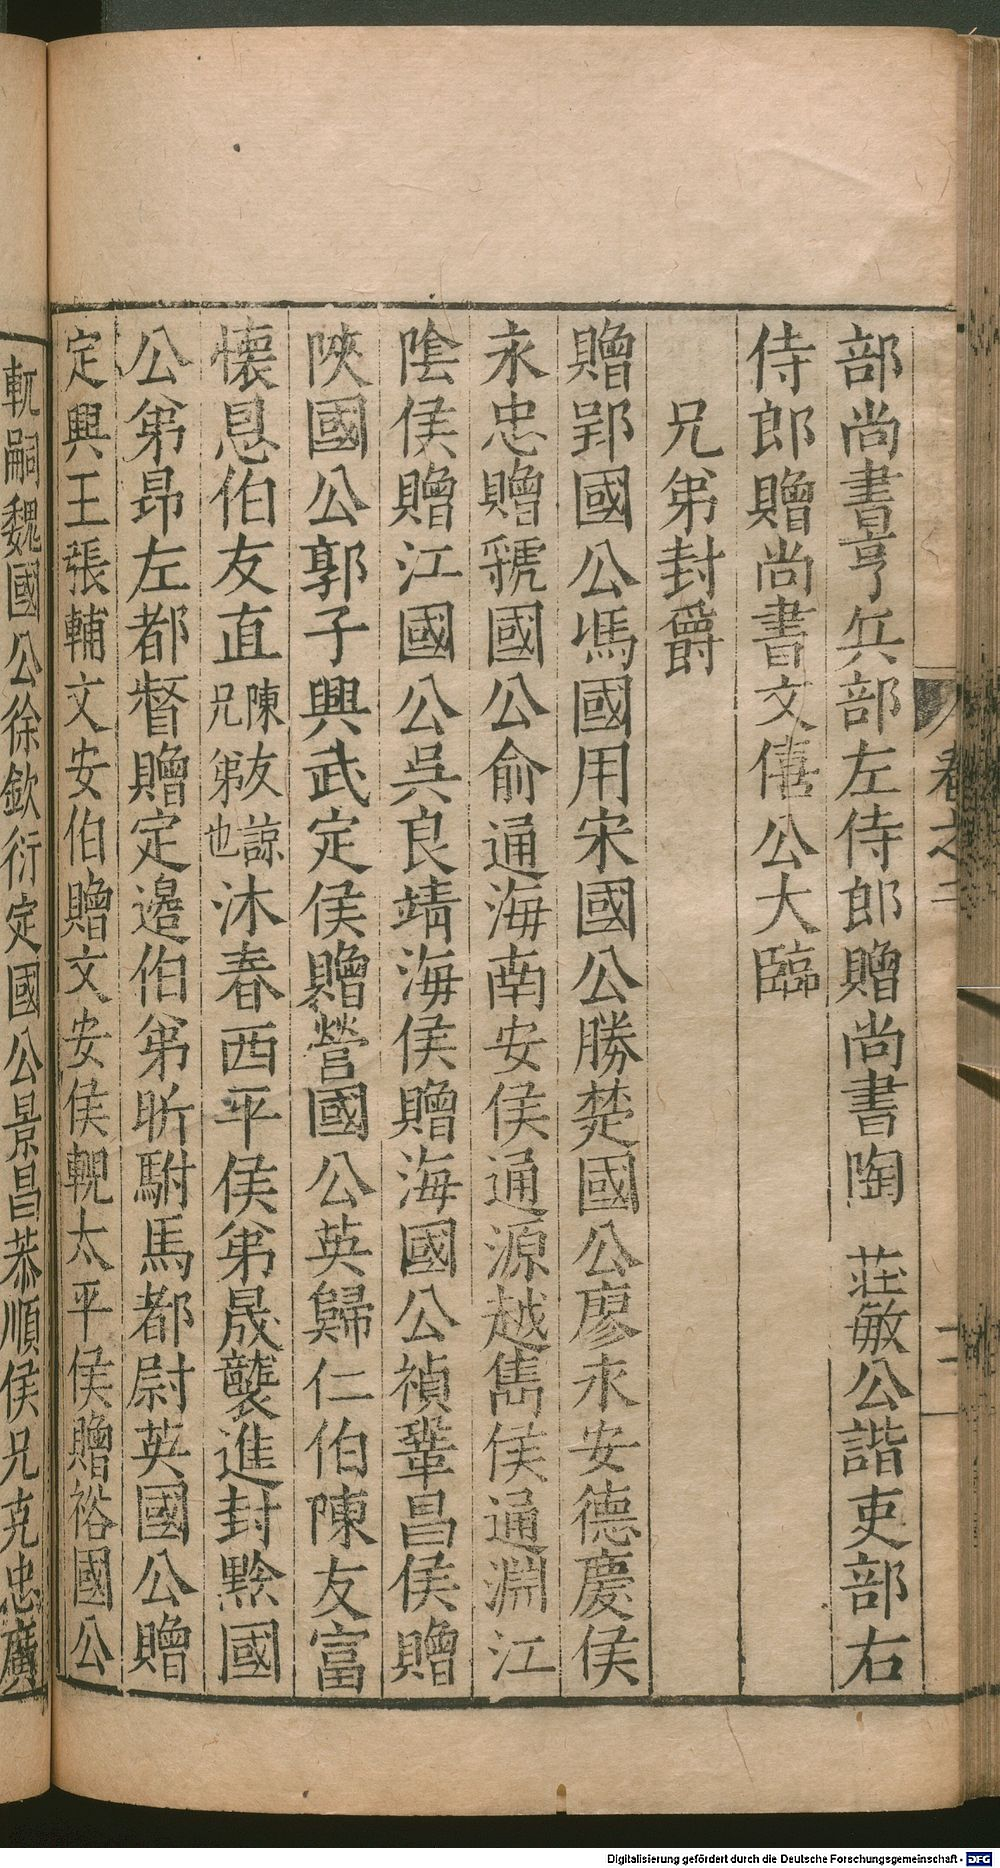 部尚書亨兵部左侍郎贈尚書陶　荘敏公諧吏部右
侍郎贈尚書文僖公大臨
兄弟封爵
贈郢國公馮國用宋國公勝楚國公廖永安德慶侯
永忠贈虢國公俞通海南安侯通源越嶲侯通淵江
陰侯贈江國公吳良靖海侯贈海國公禎鞏昌侯贈
陝國公郭子興武定侯贈營國公英歸仁伯陳友富
懷恩伯友直陳友諒兄弟也沐春西平侯弟晟襲進封黔國
公弟昻左都督贈定邊伯弟昕駙馬都尉英國公贈
定興王張輔文安伯贈文安侯輗太平侯贈裕國公
軏嗣魏國公徐欽衍定國公景昌恭順侯兄克忠廣
卷之二
二
Digitalisierung gefördert durch die Deutsche Forschungsgemeinschaft - DFG